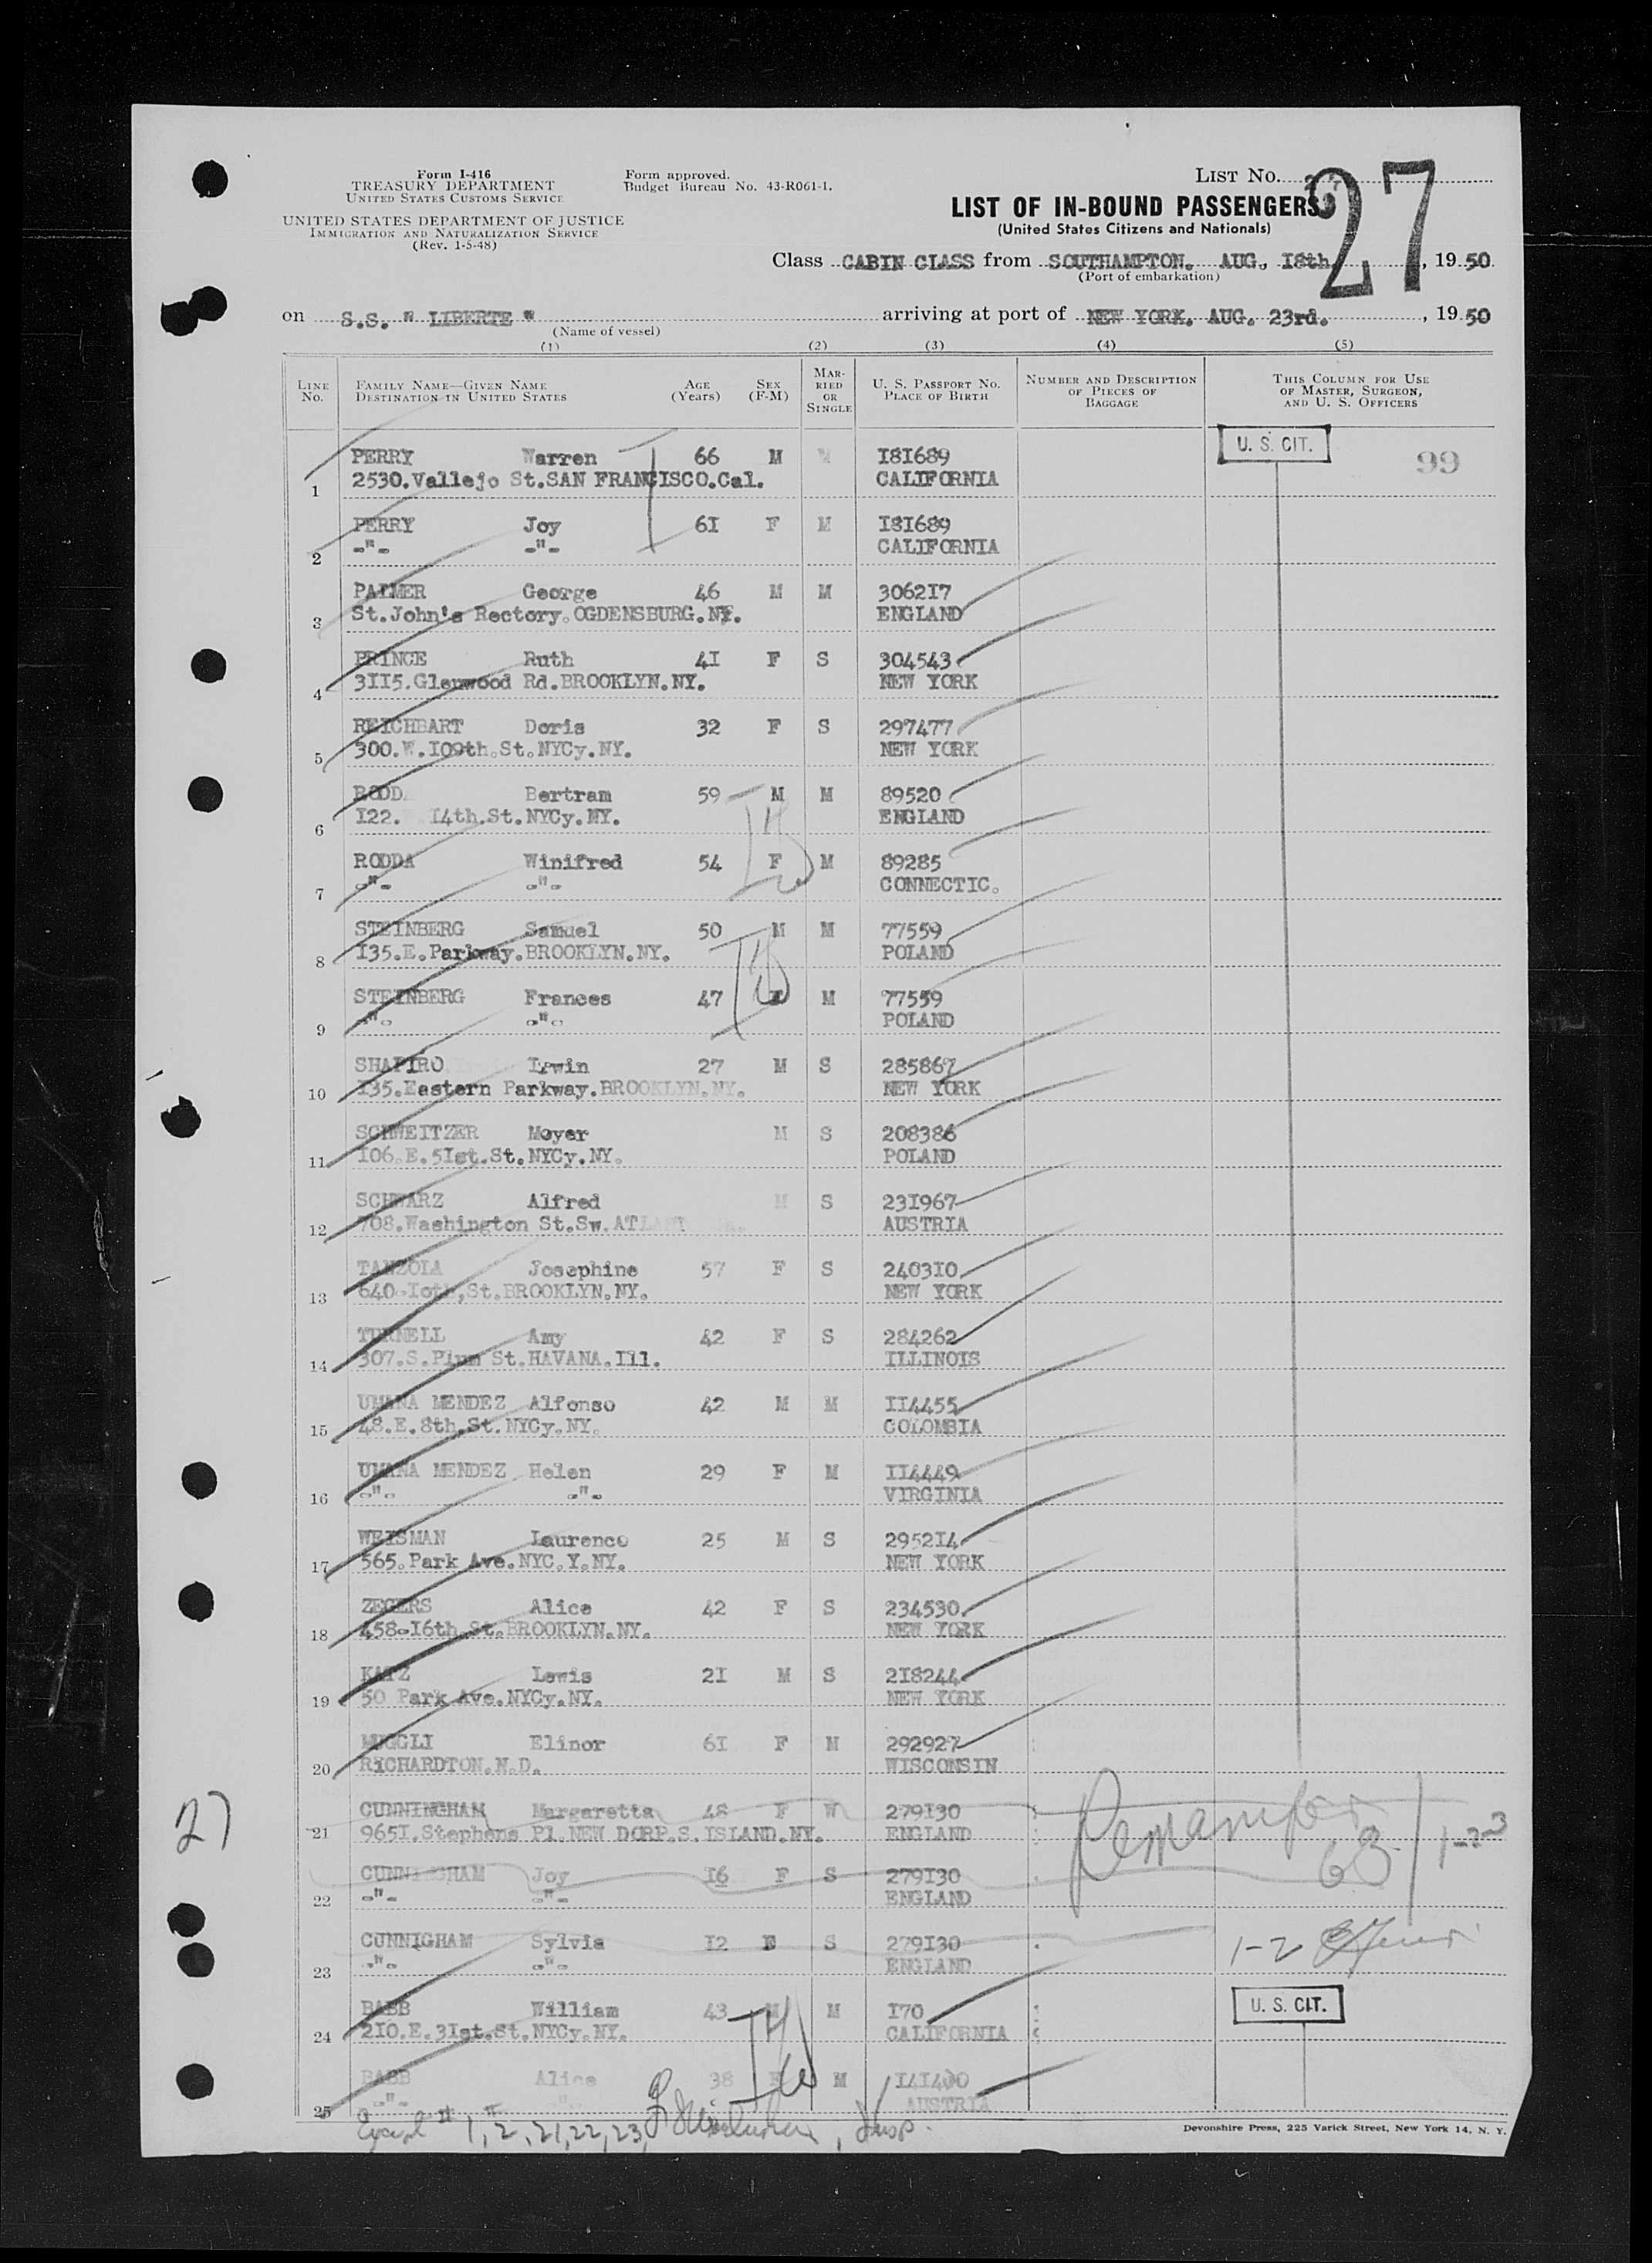 Form I-416
TREASURY DEPARTMENT
UNITED STATES CUSTOMS SERVICE
UNITED STATES DEPARTMENT OF JUSTICE
IMMIGRATION AND NATURALIZATION SERVICE
(Rev. 1-5-48)
Form approved.
Budget Bureau No. 43-R061-1.
LIST No. 27
27
LIST OF IN-BOUND PASSENGERS
(United States Citizens and Nationals)
Class CABIN CLASS from SOUTHAMPTON. AUG., 18th, 1950
(Port of embarkation)
on S.S. " LIBERTE " arriving at port of NEW YORK. AUG. 23rd., 1950
(Name of vessel)
(1) (2) (3) (4) (5)
LINE No. FAMILY NAME—GIVEN NAME DESTINATION IN UNITED STATES AGE (Years) SEX (F-M) MARRIED OR SINGLE U. S. PASSPORT NO. PLACE OF BIRTH NUMBER AND DESCRIPTION OF PIECES OF BAGGAGE THIS COLUMN FOR USE OF MASTER, SURGEON, AND U. S. OFFICERS
PERRY Warren 66 M M 181689 U. S. CIT. 99
1 2530.Vallejo St.SAN FRANCISCO.Cal. CALIFORNIA
PERRY Joy 61 F M 181689
2 -"- -"- CALIFORNIA
PALMER George 46 M M 306217
3 St.John's Rectory.OGDENSBURG.NY. ENGLAND
PRINCE Ruth 41 F S 304543
4 3115.Glenwood Rd.BROOKLYN.NY. NEW YORK
REICHBART Doris 32 F S 297477
5 300.W.109th.St.NYCy.NY. NEW YORK
RODD Bertram 59 M M 89520
6 122. 14th.St.NYCy.NY. ENGLAND
RODDA Winifred 54 F M 89285
7 -"- -"- CONNECTIC.
STEINBERG Samuel 50 M M 77559
8 135.E.Parkway.BROOKLYN.NY. POLAND
STEINBERG Frances 47 F M 77559
9 -"- -"- POLAND
SHAPIRO Irwin 27 M S 285867
10 135.Eastern Parkway.BROOKLYN.NY. NEW YORK
SCHWEITZER Meyer M S 208386
11 106.E.51st.St.NYCy.NY. POLAND
SCHWARZ Alfred M S 231967
12 708.Washington St.Sw.ATLANT AUSTRIA
TANZOLA Josephine 57 F S 240310
13 640-10th,St.BROOKLYN.NY. NEW YORK
TURNELL Amy 42 F S 284262
14 307.S.Plum St.HAVANA.Ill. ILLINOIS
UMANA MENDEZ Alfonso 42 M M 114455
15 48.E.8th.St.NYCy.NY. COLOMBIA
UMANA MENDEZ Helen 29 F M 114449
16 -"- -"- VIRGINIA
WEISMAN Laurence 25 M S 295214
17 565.Park Ave.NYC.Y.NY. NEW YORK
ZEGERS Alice 42 F S 234530
18 458-16th.St.BROOKLYN.NY. NEW YORK
KATZ Lewis 21 M S 218244
19 50 Park Ave.NYCy.NY. NEW YORK
MUGGLI Elinor 61 F M 292927
20 RICHARDTON.N.D. WISCONSIN
27
CUNNINGHAM Margaretta 48 F W 279130
21 9651.Stephens Pl.NEW DORP.S.ISLAND.NY. ENGLAND 63 1-2-3
CUNNINGHAM Joy 16 F S 279130
22 -"- -"- ENGLAND
CUNNIGHAM Sylvia 12 F S 279130 1-2
23 -"- -"- ENGLAND
BABB William 43 M M 170 U. S. CIT.
24 210.E.31st.St.NYCy.NY. CALIFORNIA
BABB Alice 38 F M 141400
25 -"- " AUSTRIA
Except # 1, 2, 21, 22, 23, Insp.
Devonshire Press, 225 Varick Street, New York 14, N. Y.